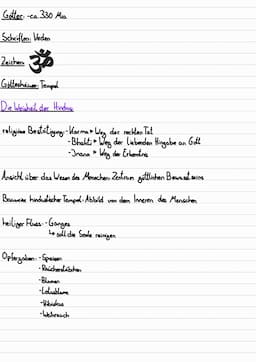 Götter: -ca. 330 Mio.
Schriften: Veden
Zeichen: ॐ
Gotteshäuser: Tempel
Die Weisheit der Hindus
religiöse Bestätigung: -Karma → Weg der rechten Tat
-Bhakti → Weg der liebenden Hingabe an Gott
-Jnana → Weg der Erkenntnis
Ansicht über das Wesen des Menschen: Zentrum göttlichen Bewusstseins
Bauweise hinduistischer Tempel: Abbild von dem Inneren des Menschen
heiliger Fluss: -Ganges
↳ soll die Seele reinigen
Opfergaben: -Speisen
-Räucherstäbchen
-Blumen
-Lotusblume
-Hibiskus
-Weihrauch